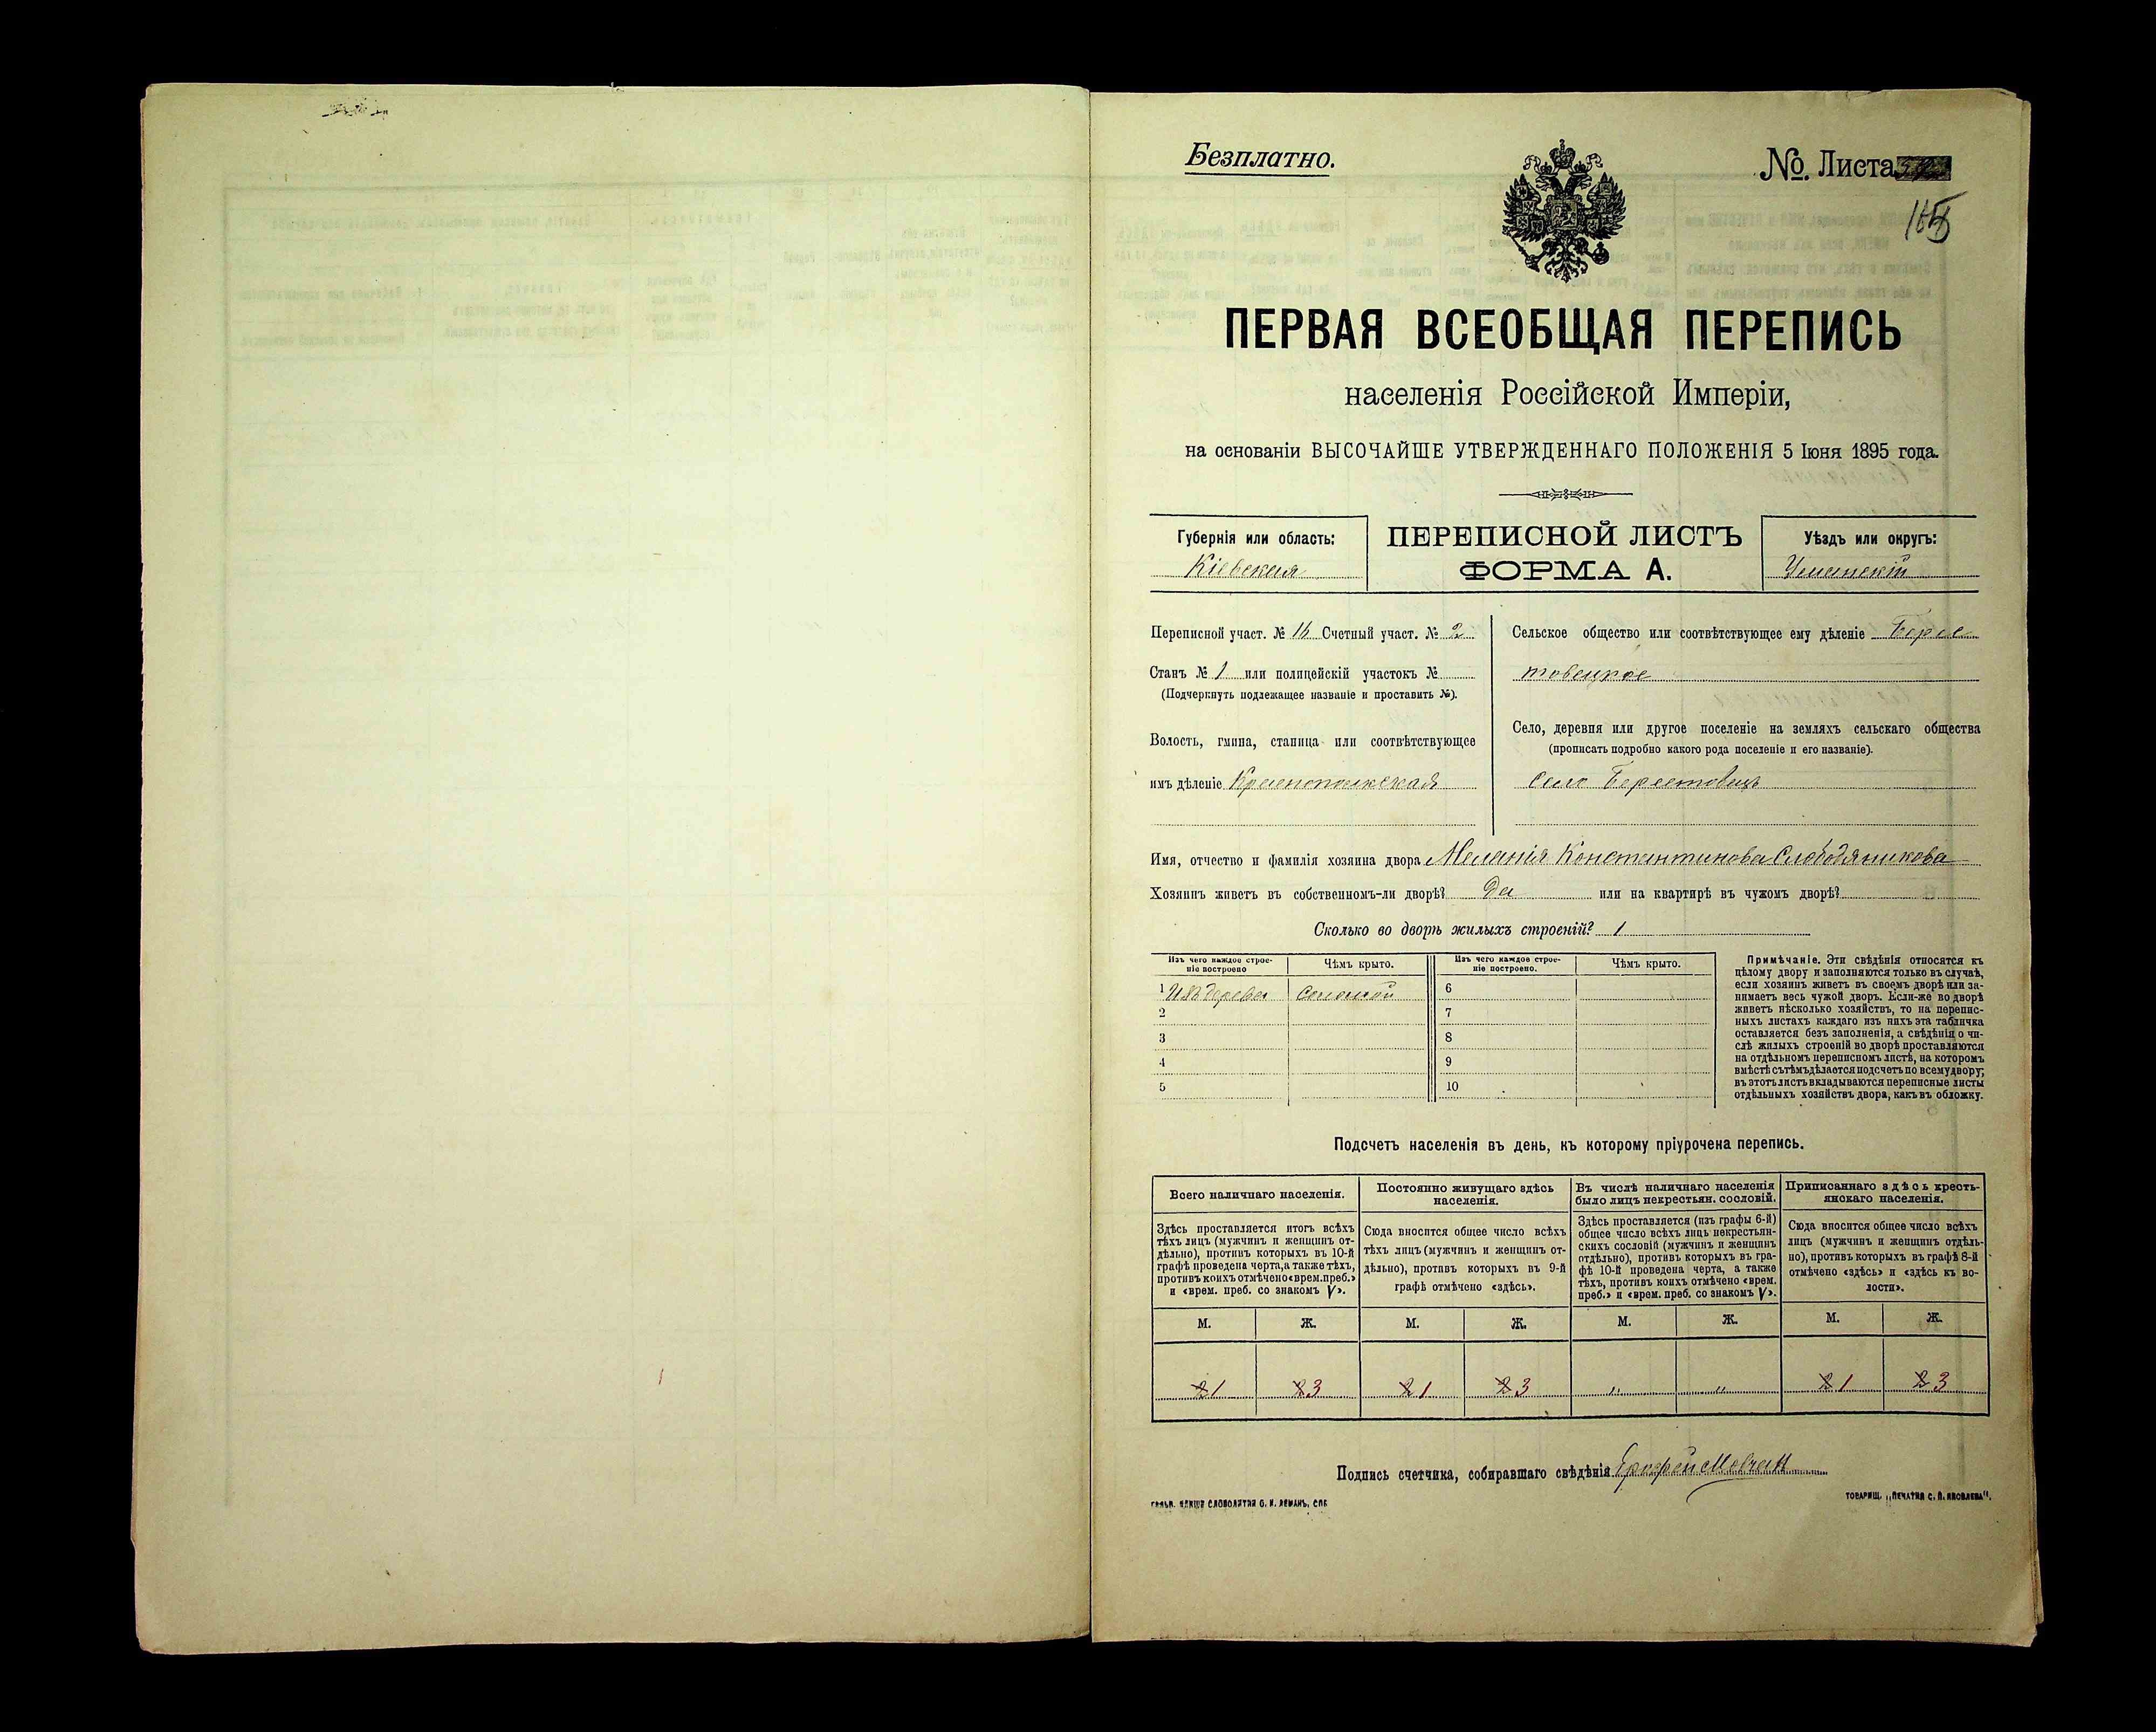 Безплатно.
№ Листа
ПЕРВАЯ ВСЕОБЩАЯ ПЕРЕПИСЬ
населенія Россійской Имперіи,
на основаніи ВЫСОЧАЙШЕ УТВЕРЖДЕННАГО ПОЛОЖЕНІЯ 5 Іюня 1895 года.
Губернія или область:
Кіевская
ПЕРЕПИСНОЙ ЛИСТЪ
ФОРМА А.
Уѣздъ или округъ:
Уманскій
Переписной участ. № 16 Счетный участ. № 2
Станъ № 1 или полицейскій участокъ №
(Подчеркнуть подлежащее названіе и проставить №).
Волость, гмина, станица или соотвѣтствующее
имъ дѣленіе Краснопольская
Сельское общество или соотвѣтствующее ему дѣленіе Берес
товецкое
Село, деревня или другое поселеніе на земляхъ сельскаго общества
(прописать подробно какого рода поселеніе и его названіе).
село Берестовецъ
Имя, отчество и фамилія хозяина двора Меланія Константинова Слободяникова
Хозяинъ живетъ въ собственномъ-ли дворѣ? Да или на квартирѣ въ чужомъ дворѣ?
Сколько во дворѣ жилыхъ строеній? 1
Изъ чего каждое строе-
ніе построено
Чѣмъ крыто.
Изъ чего каждое строе-
ніе построено.
Чѣмъ крыто.
1 Изъ дерева соломой 6
2 7
3 8
4 9
5 10
Примѣчаніе. Эти свѣдѣнія относятся къ
цѣлому двору и заполняются только въ случаѣ,
если хозяинъ живетъ въ своемъ дворѣ или за-
нимаетъ весь чужой дворъ. Если-же во дворѣ
живетъ нѣсколько хозяйствъ, то на перепис-
ныхъ листахъ каждаго изъ нихъ эта табличка
оставляется безъ заполненія, а свѣдѣнія о чи-
слѣ жилыхъ строеній во дворѣ проставляются
на отдѣльномъ переписномъ листѣ, на которомъ
вмѣстѣ съ тѣмъ дѣлается подсчетъ по всему двору;
въ этотъ листъ вкладываются переписные листы
отдѣльныхъ хозяйствъ двора, какъ въ обложку.
Подсчетъ населенія въ день, къ которому пріурочена перепись.
Всего наличнаго населенія.
Здѣсь проставляется итогъ всѣхъ
тѣхъ лицъ (мужчинъ и женщинъ от-
дѣльно), противъ которыхъ въ 10-й
графѣ проведена черта, а также тѣхъ,
противъ коихъ отмѣчено «врем. преб.»
и «врем. преб. со знакомъ V».
Постоянно живущаго здѣсь
населенія.
Сюда вносится общее число всѣхъ
тѣхъ лицъ (мужчинъ и женщинъ от-
дѣльно), противъ которыхъ въ 9-й
графѣ отмѣчено «здѣсь».
Въ числѣ наличнаго населенія
было лицъ некрестьян. сословій.
Здѣсь проставляется (изъ графы 6-й)
общее число всѣхъ лицъ некрестьян-
скихъ сословій (мужчинъ и женщинъ
отдѣльно), противъ которыхъ въ гра-
фѣ 10-й проведена черта, а также
тѣхъ, противъ коихъ отмѣчено «врем.
преб.» и «врем. преб. со знакомъ V».
Приписаннаго здѣсь кресть-
янскаго населенія.
Сюда вносится общее число всѣхъ
лицъ (мужчинъ и женщинъ отдѣль-
но), противъ которыхъ въ графѣ 8-й
отмѣчено «здѣсь» и «здѣсь къ во-
лости».
М. Ж. М. Ж. М. Ж. М. Ж.
2 1 2 3 2 1 2 3 " " 2 1 2 3
Подпись счетчика, собиравшаго свѣдѣнія Ерофей Мовчан
ТОВАРИЩ. „ПЕЧАТНЯ С. П. ЯКОВЛЕВА".